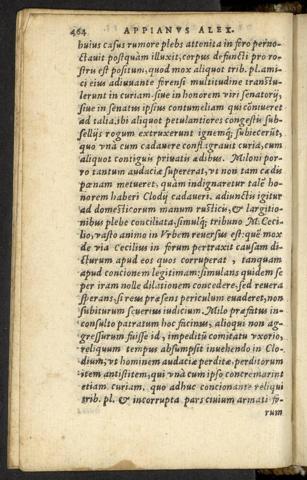 464 APPIANVS ALEX.
huius casus rumore plebs attonita in foro perno-
ctauit postquàm illuxit, corpus defuncti pro ro-
stru est positum, quod mox aliquot trib. pl. ami-
ci eius adiuuante forensi multitudine transtu-
lerunt in curiam. siue in honorem viri senatorij,
siue in senatus ipsius contumeliam qui cōniueret
ad talia. ibi aliquot petulantiores congestis sub-
sellijs rogum extruxerunt ignemq; subiecerūt,
quo vnà cum cadauere conflagrauit curia, cum
aliquot contiguis priuatis ædibus. Miloni por-
ro tantum audaciæ supererat, vt non tam cædis
pœnam metueret, quàm indignaretur talē ho-
norem haberi Clodij cadaueri. adiunctis igitur
ad domesticorum manum rusticis, & largitio-
nibus plebe conciliata, simulq; tribuno M. Ceci-
lio, vasto animo in Vrbem reuersus est: quē mox
de via Cecilius in forum pertraxit causam di-
cturum apud eos quos corruperat, tanquam
apud concionem legitimam: simulans quidem se
per iram nolle dilationem concedere, sed reuera
sperans, si reus præsens periculum euaderet, non
subiturum seuerius iudicium. Milo præfatus in-
consulto patratum hoc facinus, alioqui non ag-
gressurum fuisse id, impeditū comitatu vxorio,
reliquum tempus absumpsit inuehendo in Clo-
dium, vt hominem audaciæ perditæ, perditorum
item antistitem, qui vnà cum ipso concremarint
etiam curiam. quo adhuc concionante reliqui
trib. pl. & incorrupta pars ciuium armati fo-
rum